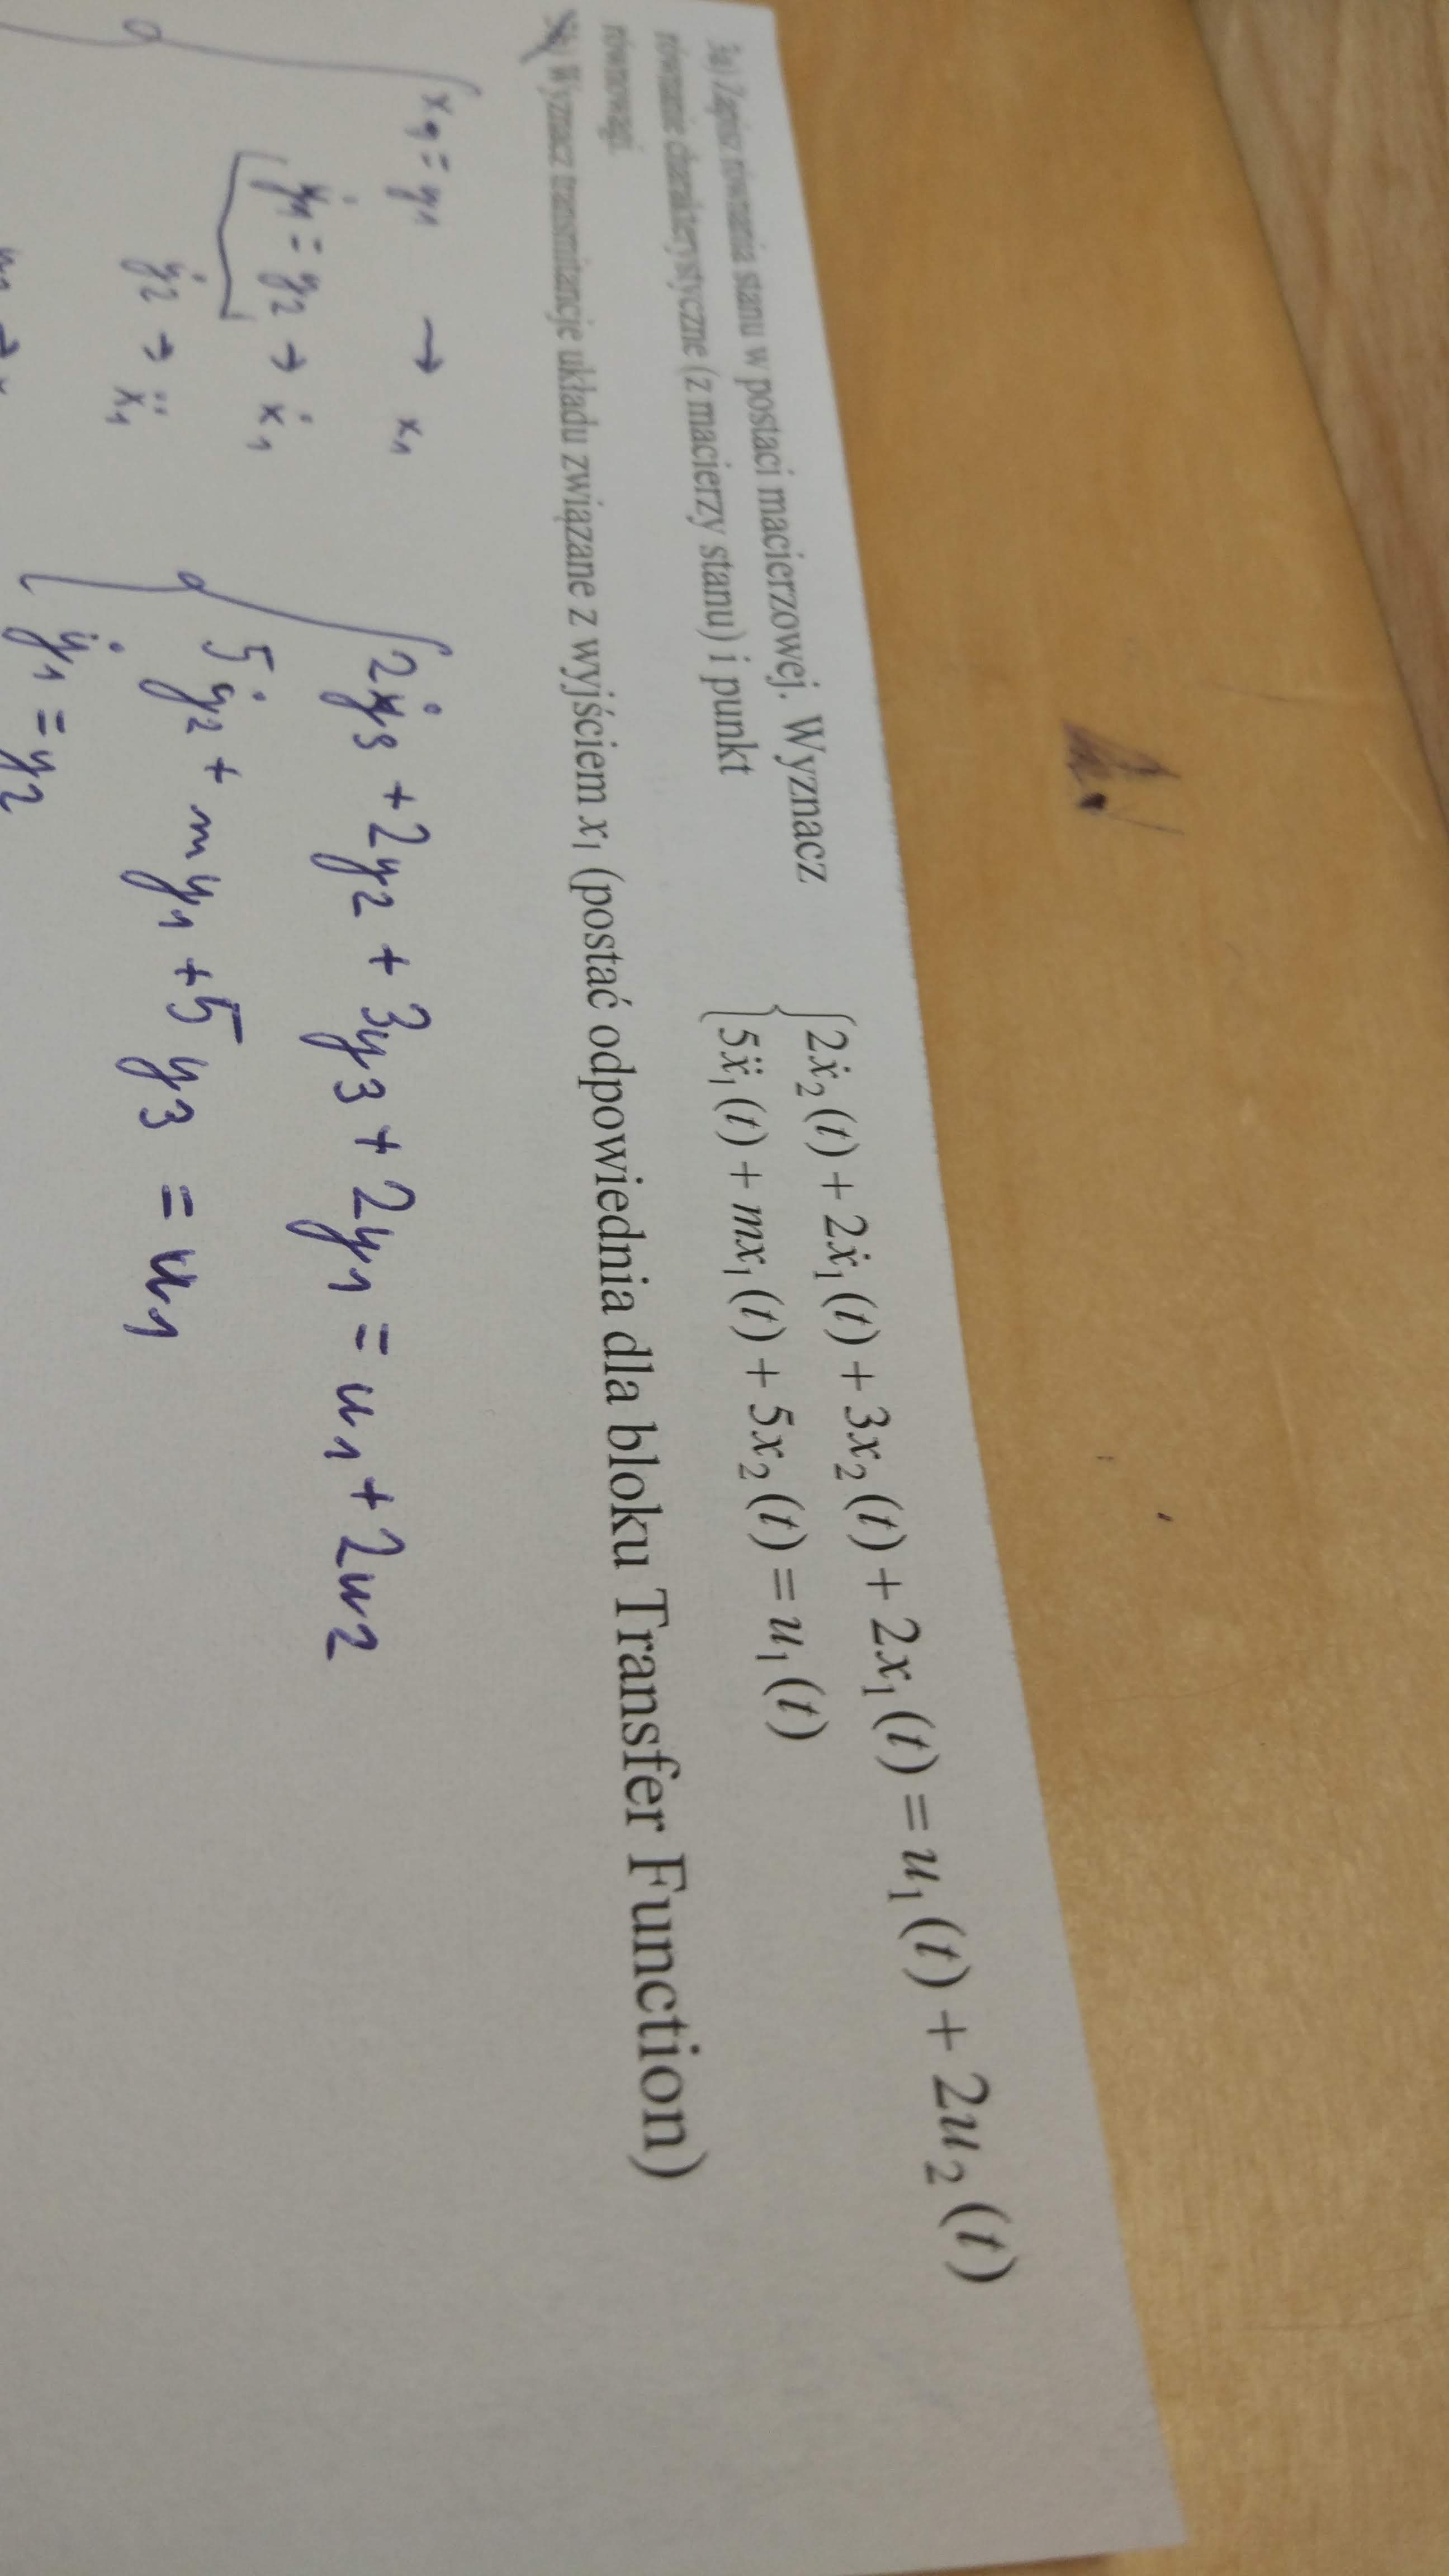 3a) Zapisz równania stanu w postaci macierzowej. Wyznacz
równanie charakterystyczne (z macierzy stanu) i punkt
równowagi.
2ẋ₂(t) + 2ẋ₁(t) + 3x₂(t) + 2x₁(t) = u₁(t) + 2u₂(t)
5ẍ₁(t) + mx₁(t) + 5x₂(t) = u₁(t)
3b) Wyznacz transmitancje układu związane z wyjściem x₁ (postać odpowiednia dla bloku Transfer Function)
x₁ = y₁ → x₁
ẏ₁ = y₂ → ẋ₁
ẏ₂ → ẍ₁
2ẏ₃ + 2y₂ + 3y₃ + 2y₁ = u₁ + 2u₂
5ẏ₂ + my₁ + 5y₃ = u₁
ẏ₁ = y₂